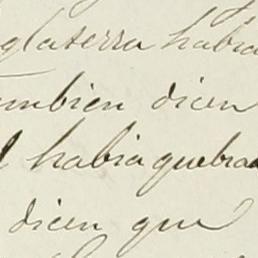 glaterra habia
ambien dicen
l habia quebra
dicen que